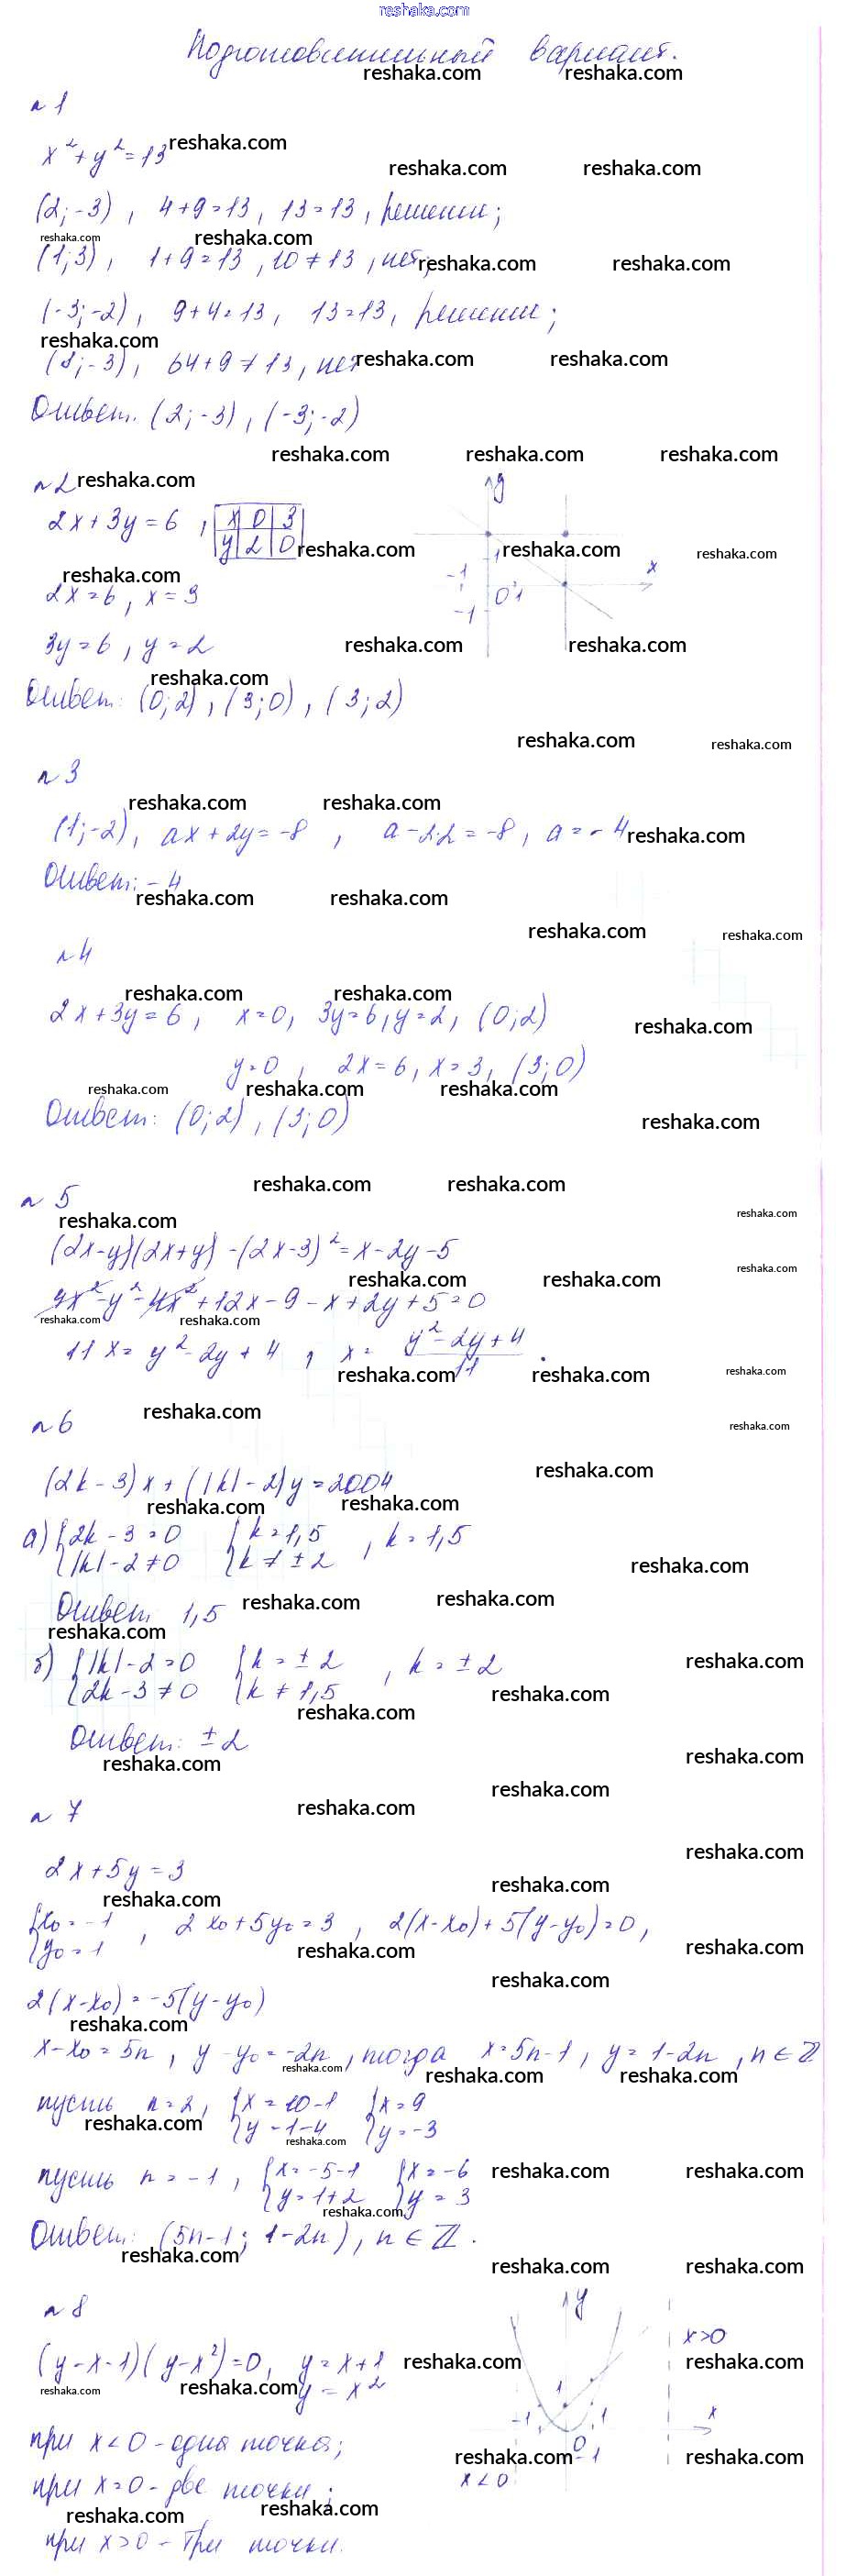 reshaka.com
Подготовительный вариант.
reshaka.com reshaka.com
n 1
x² + y² = 13 reshaka.com
reshaka.com reshaka.com
(2; -3) , 4+9=13, 13=13, решение;
reshaka.com reshaka.com
(1; 3) , 1+9=13, 10≠13, нет; reshaka.com reshaka.com
(-3; -2), 9+4=13, 13=13, решение;
reshaka.com
(8; -3), 64+9≠13, нет reshaka.com reshaka.com
Ответ. (2; -3), (-3; -2)
reshaka.com reshaka.com reshaka.com
n 2 reshaka.com y
2x+3y=6 , x 0 3
y 2 0 reshaka.com 1 reshaka.com reshaka.com
reshaka.com -1 x
2x=6, x=3 0 1
-1
3y=6, y=2 reshaka.com reshaka.com
reshaka.com
Ответ: (0; 2), (3; 0), (3; 2)
reshaka.com reshaka.com
n 3
reshaka.com reshaka.com
(1; -2), ax+2y=-8 , a-2·2=-8, a=-4 reshaka.com
Ответ: -4
reshaka.com reshaka.com
reshaka.com reshaka.com
n 4
reshaka.com reshaka.com
2x+3y=6, x=0, 3y=6, y=2, (0; 2)
reshaka.com
y=0 , 2x=6, x=3, (3; 0)
reshaka.com reshaka.com reshaka.com
Ответ: (0; 2), (3; 0)
reshaka.com
reshaka.com reshaka.com
n 5
reshaka.com reshaka.com
(2x-y)(2x+y)-(2x-3)²=x-2y-5
reshaka.com
reshaka.com reshaka.com
4x²-y²-4x²+12x-9-x+2y+5=0
reshaka.com reshaka.com
11x=y²-2y+4 , x= y²-2y+4
11 .
reshaka.com reshaka.com reshaka.com
reshaka.com
n 6 reshaka.com
reshaka.com
(2k-3)x+(|k|-2)y=2004
reshaka.com reshaka.com
а) {2k-3=0 {k=1,5 , k=1,5
{|k|-2≠0 {k≠±2
reshaka.com
Ответ 1,5 reshaka.com reshaka.com
reshaka.com
б) {|k|-2=0 {k=±2 , k=±2 reshaka.com
{2k-3≠0 {k≠1,5 reshaka.com
reshaka.com
Ответ: ±2
reshaka.com reshaka.com
reshaka.com
n 7 reshaka.com
reshaka.com
2x+5y=3
reshaka.com reshaka.com
{x₀=-1 , 2x₀+5y₀=3 , 2(x-x₀)+5(y-y₀)=0,
{y₀=1 reshaka.com reshaka.com
reshaka.com
2(x-x₀)=-5(y-y₀)
reshaka.com
x-x₀=5n, y-y₀=-2n, тогда x=5n-1, y=1-2n, n∈ℤ
reshaka.com reshaka.com reshaka.com
пусть n=2, {x=10-1 {x=9
{y=1-4 {y=-3
reshaka.com reshaka.com
пусть n=-1, {x=-5-1 {x=-6 reshaka.com reshaka.com
{y=1+2 {y=3
reshaka.com
Ответ: (5n-1; 1-2n), n∈ℤ.
reshaka.com
reshaka.com reshaka.com
n 8 y
x>0
(y-x-1)(y-x²)=0, y=x+1 reshaka.com reshaka.com
y=x²
reshaka.com reshaka.com
1
-1 1 x
0
-1
при x<0 - одна точка;
reshaka.com reshaka.com
x<0
при x=0 - две точки;
reshaka.com reshaka.com
при x>0 - три точки.